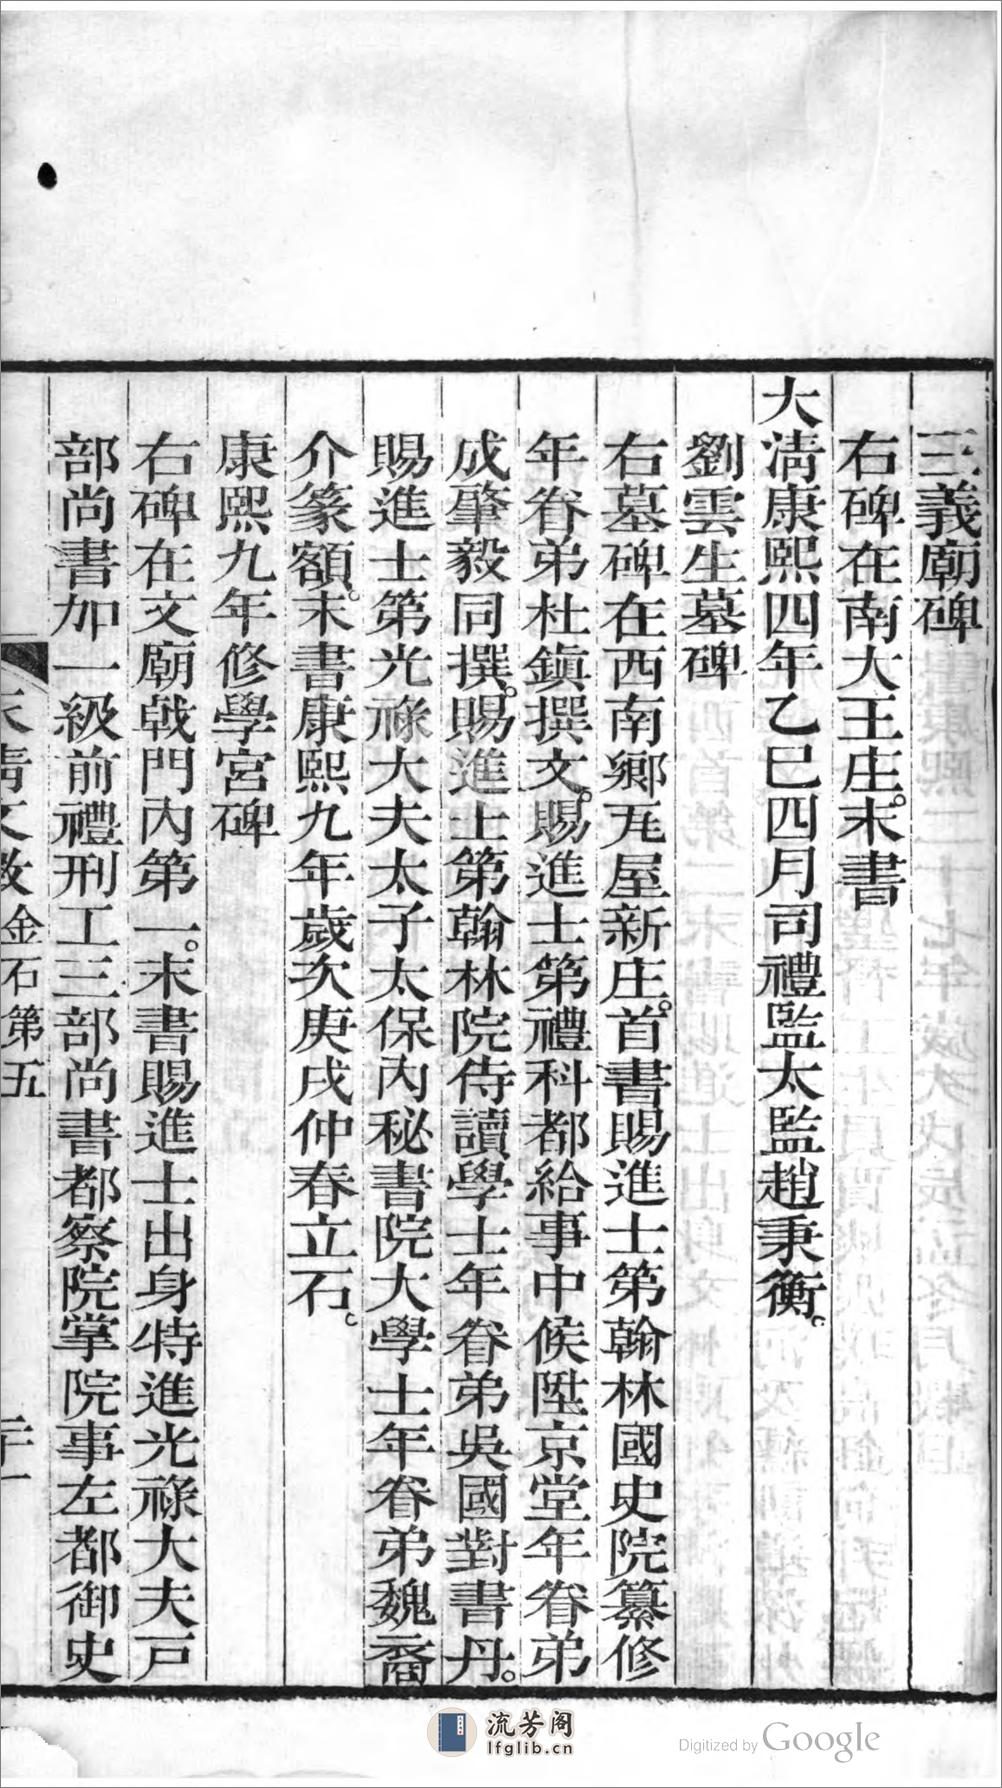 三義廟碑
右碑在南大王庄。末書
大淸康熙四年乙巳四月司禮監太監趙秉衡。
劉雲生墓碑
右墓碑在西南鄉瓦屋新庄。首書賜進士第翰林國史院纂修
年眷弟杜鎭撰文。賜進士第禮科都給事中候陞京堂年眷弟
成肇毅同撰。賜進士第翰林院侍讀學士年眷弟吳國對書丹。
賜進士第光祿大夫太子太保內秘書院大學士年眷弟魏裔
介篆額。末書康熙九年歲次庚戌仲春立石。
康熙九年修學宮碑
右碑在文廟戟門內第一。末書賜進士出身特進光祿大夫戸
部尚書加一級前禮刑工三部尚書都察院掌院事左都御史
金石第五
流芳阁
lfglib.cn
Digitized by Google